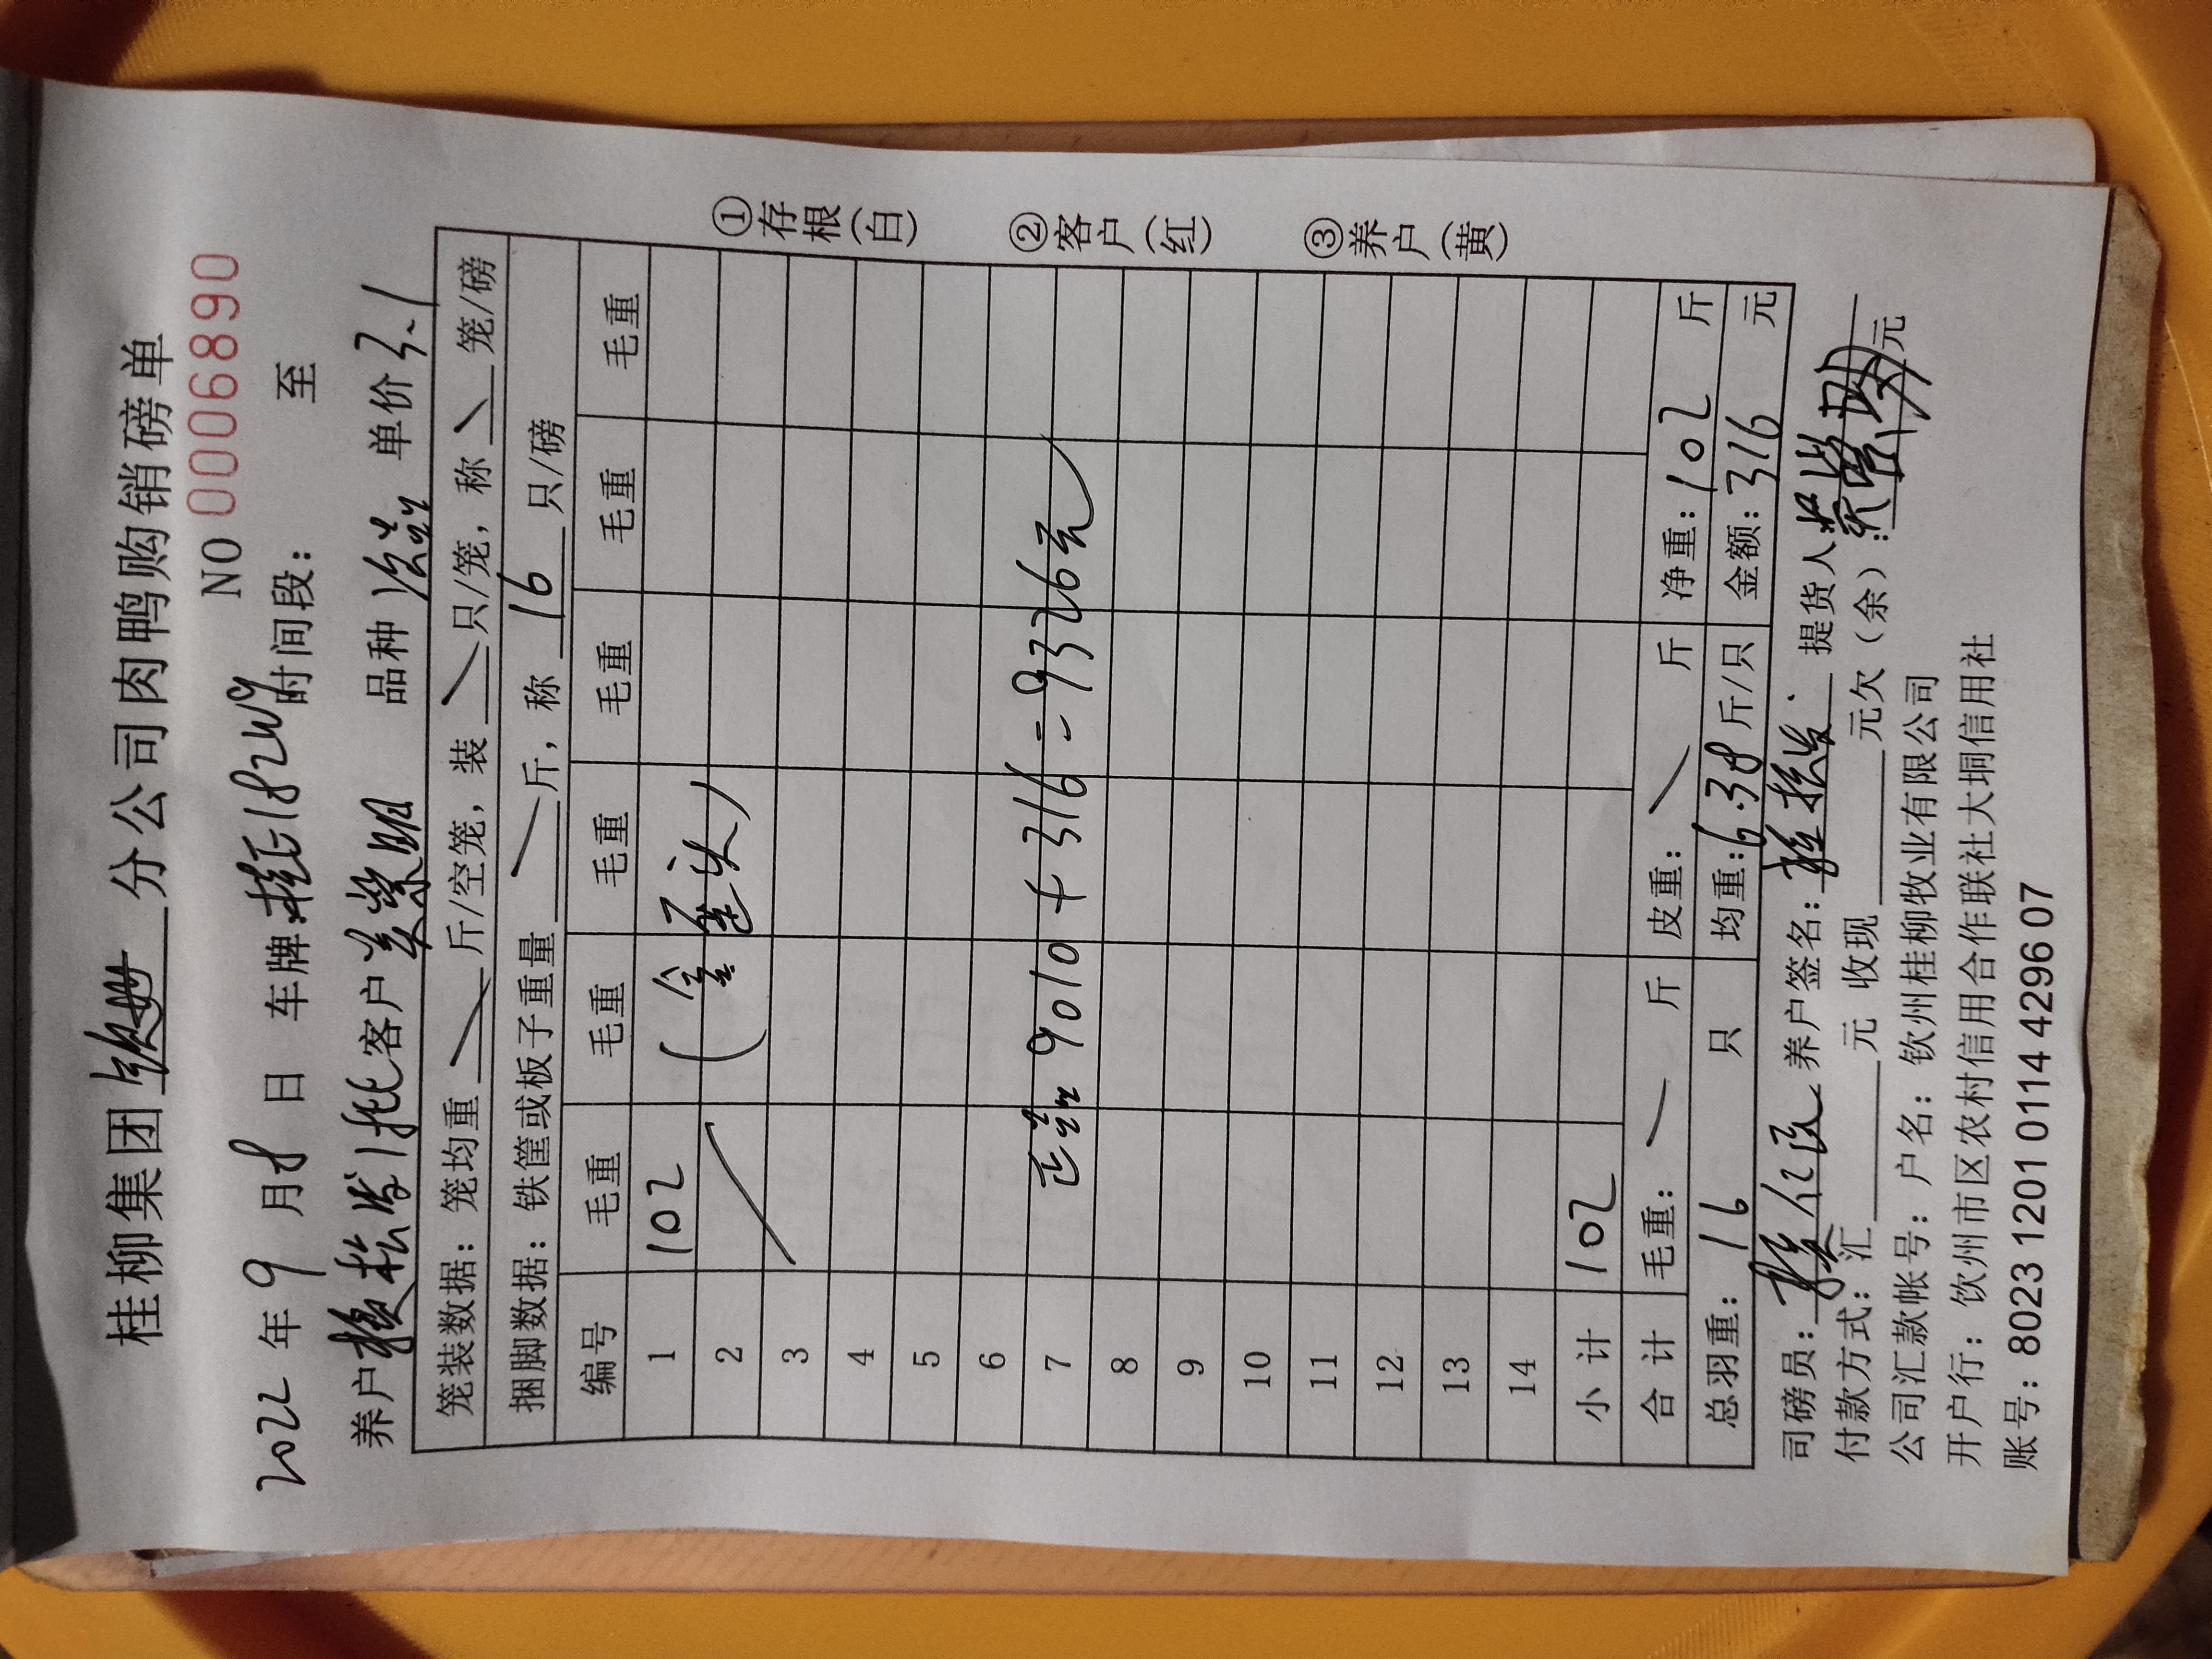 桂柳集团 分公司肉鸭购销磅单
NO 0006890
2022 年 9 月 8 日 车牌:桂E182W9 时间段: 至
养户 客户 品种 次品 单价 3.1
笼装数据:笼均重 斤/空笼,装 只/笼,称 笼/磅
捆脚数据:铁筐或板子重量 斤,称 16 只/磅
编号 毛重 毛重 毛重 毛重 毛重 毛重
1 102 (含歪头)
2
3
4
5
6
7 正品 9010 + 316 = 9326元
8
9
10
11
12
13
14
小 计 102
合 计 毛重: 斤 皮重: 斤 净重:102 斤
总羽重: 16 只 均重:6.38 斤/只 金额:316 元
司磅员: 养户签名: 提货人
付款方式:汇 元 收现 元欠(余): 元
公司汇款帐号:户名:钦州桂柳牧业有限公司
开户行:钦州市区农村信用合作联社大垌信用社
账号:8023 1201 0114 4296 07
①存根(白)
②客户(红)
③养户(黄)